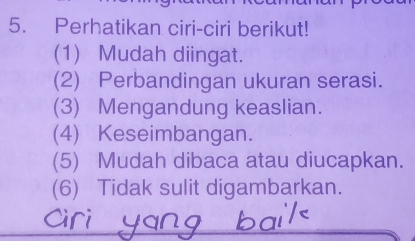 5. Perhatikan ciri-ciri berikut!
(1) Mudah diingat.
(2) Perbandingan ukuran serasi.
(3) Mengandung keaslian.
(4) Keseimbangan.
(5) Mudah dibaca atau diucapkan.
(6) Tidak sulit digambarkan.
Ciri yang baik